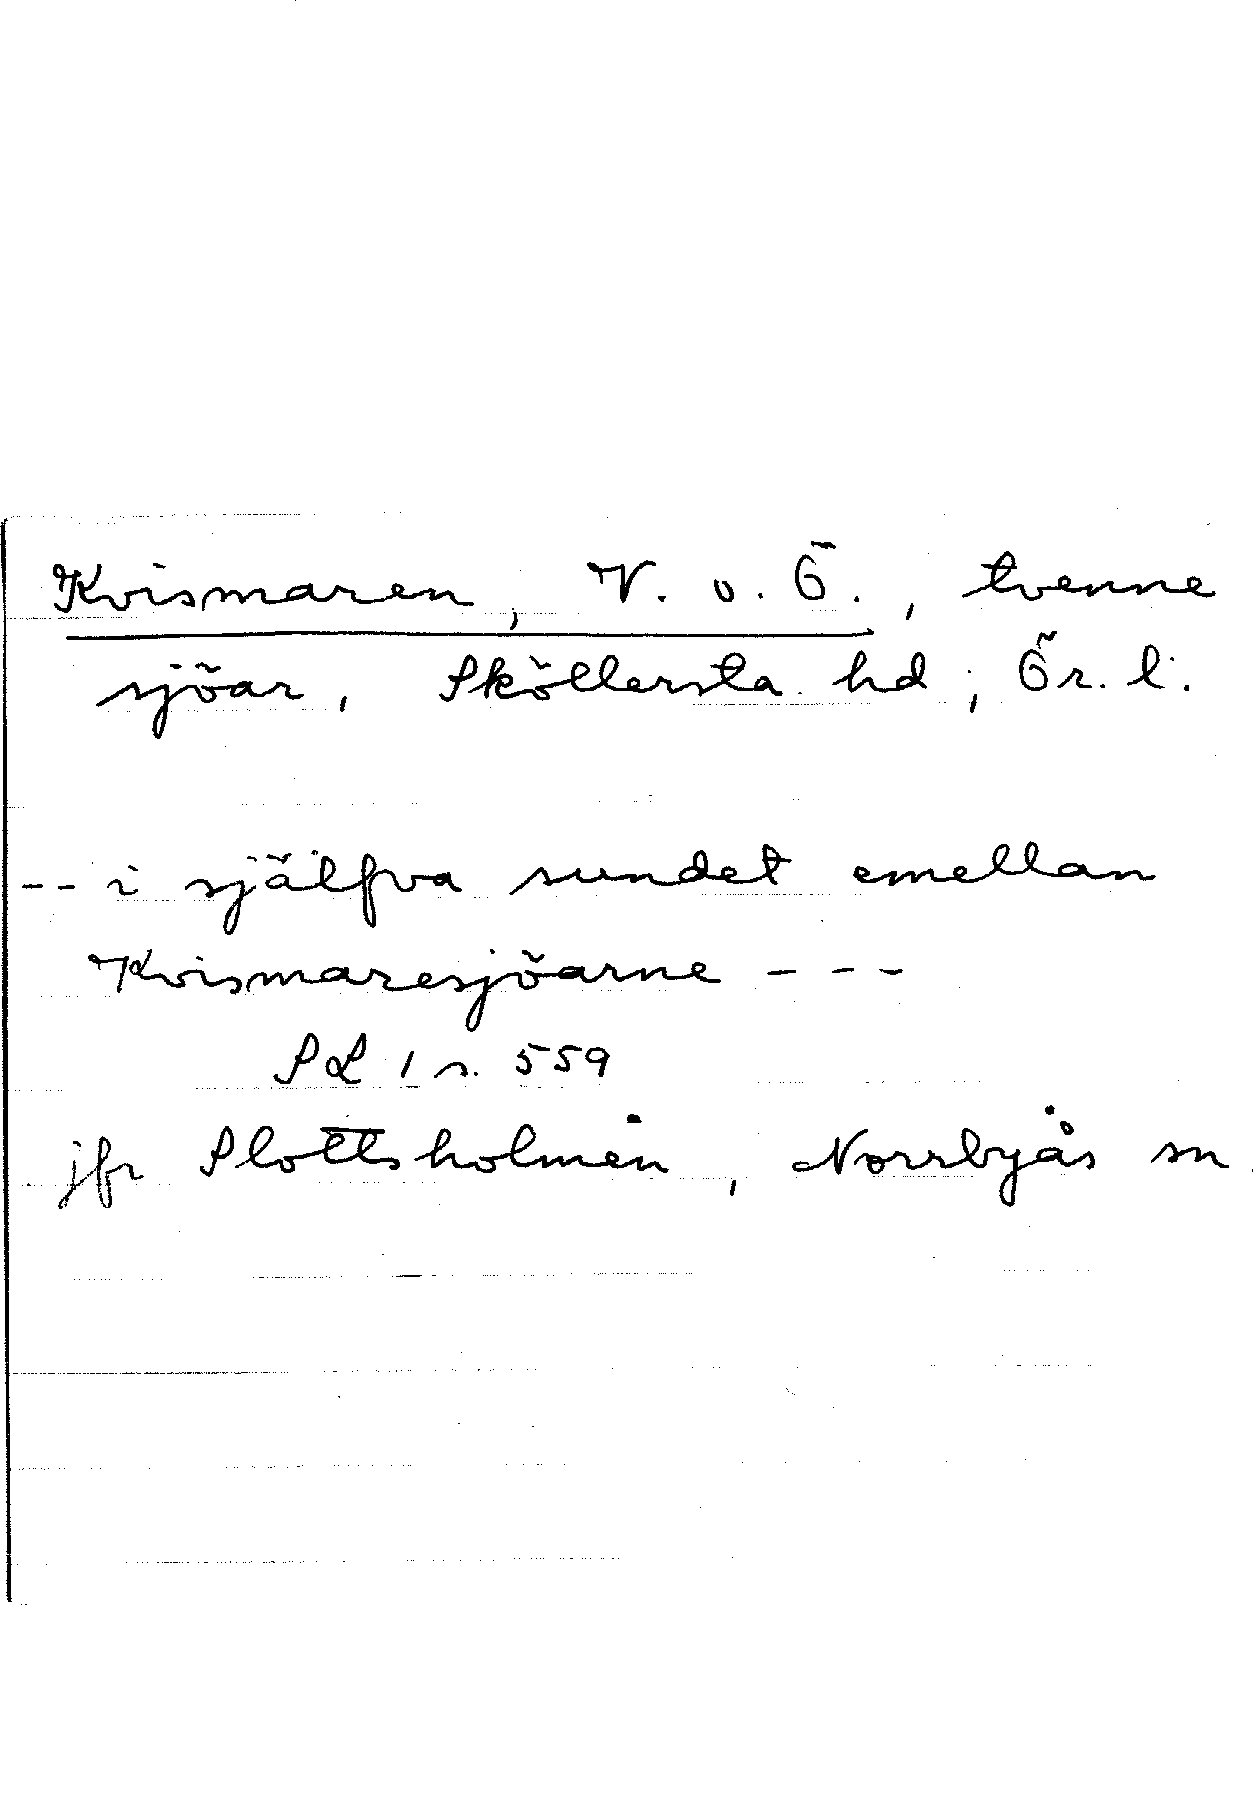 Kvismaren, V. o. Ö., tvenne
sjöar, Sköllersta hd, Ör. l.
-- i själfva sundet emellan
Kvismaresjöarne ---
SL 1 s. 559
jfr Slottsholmen, Norrbyås sn